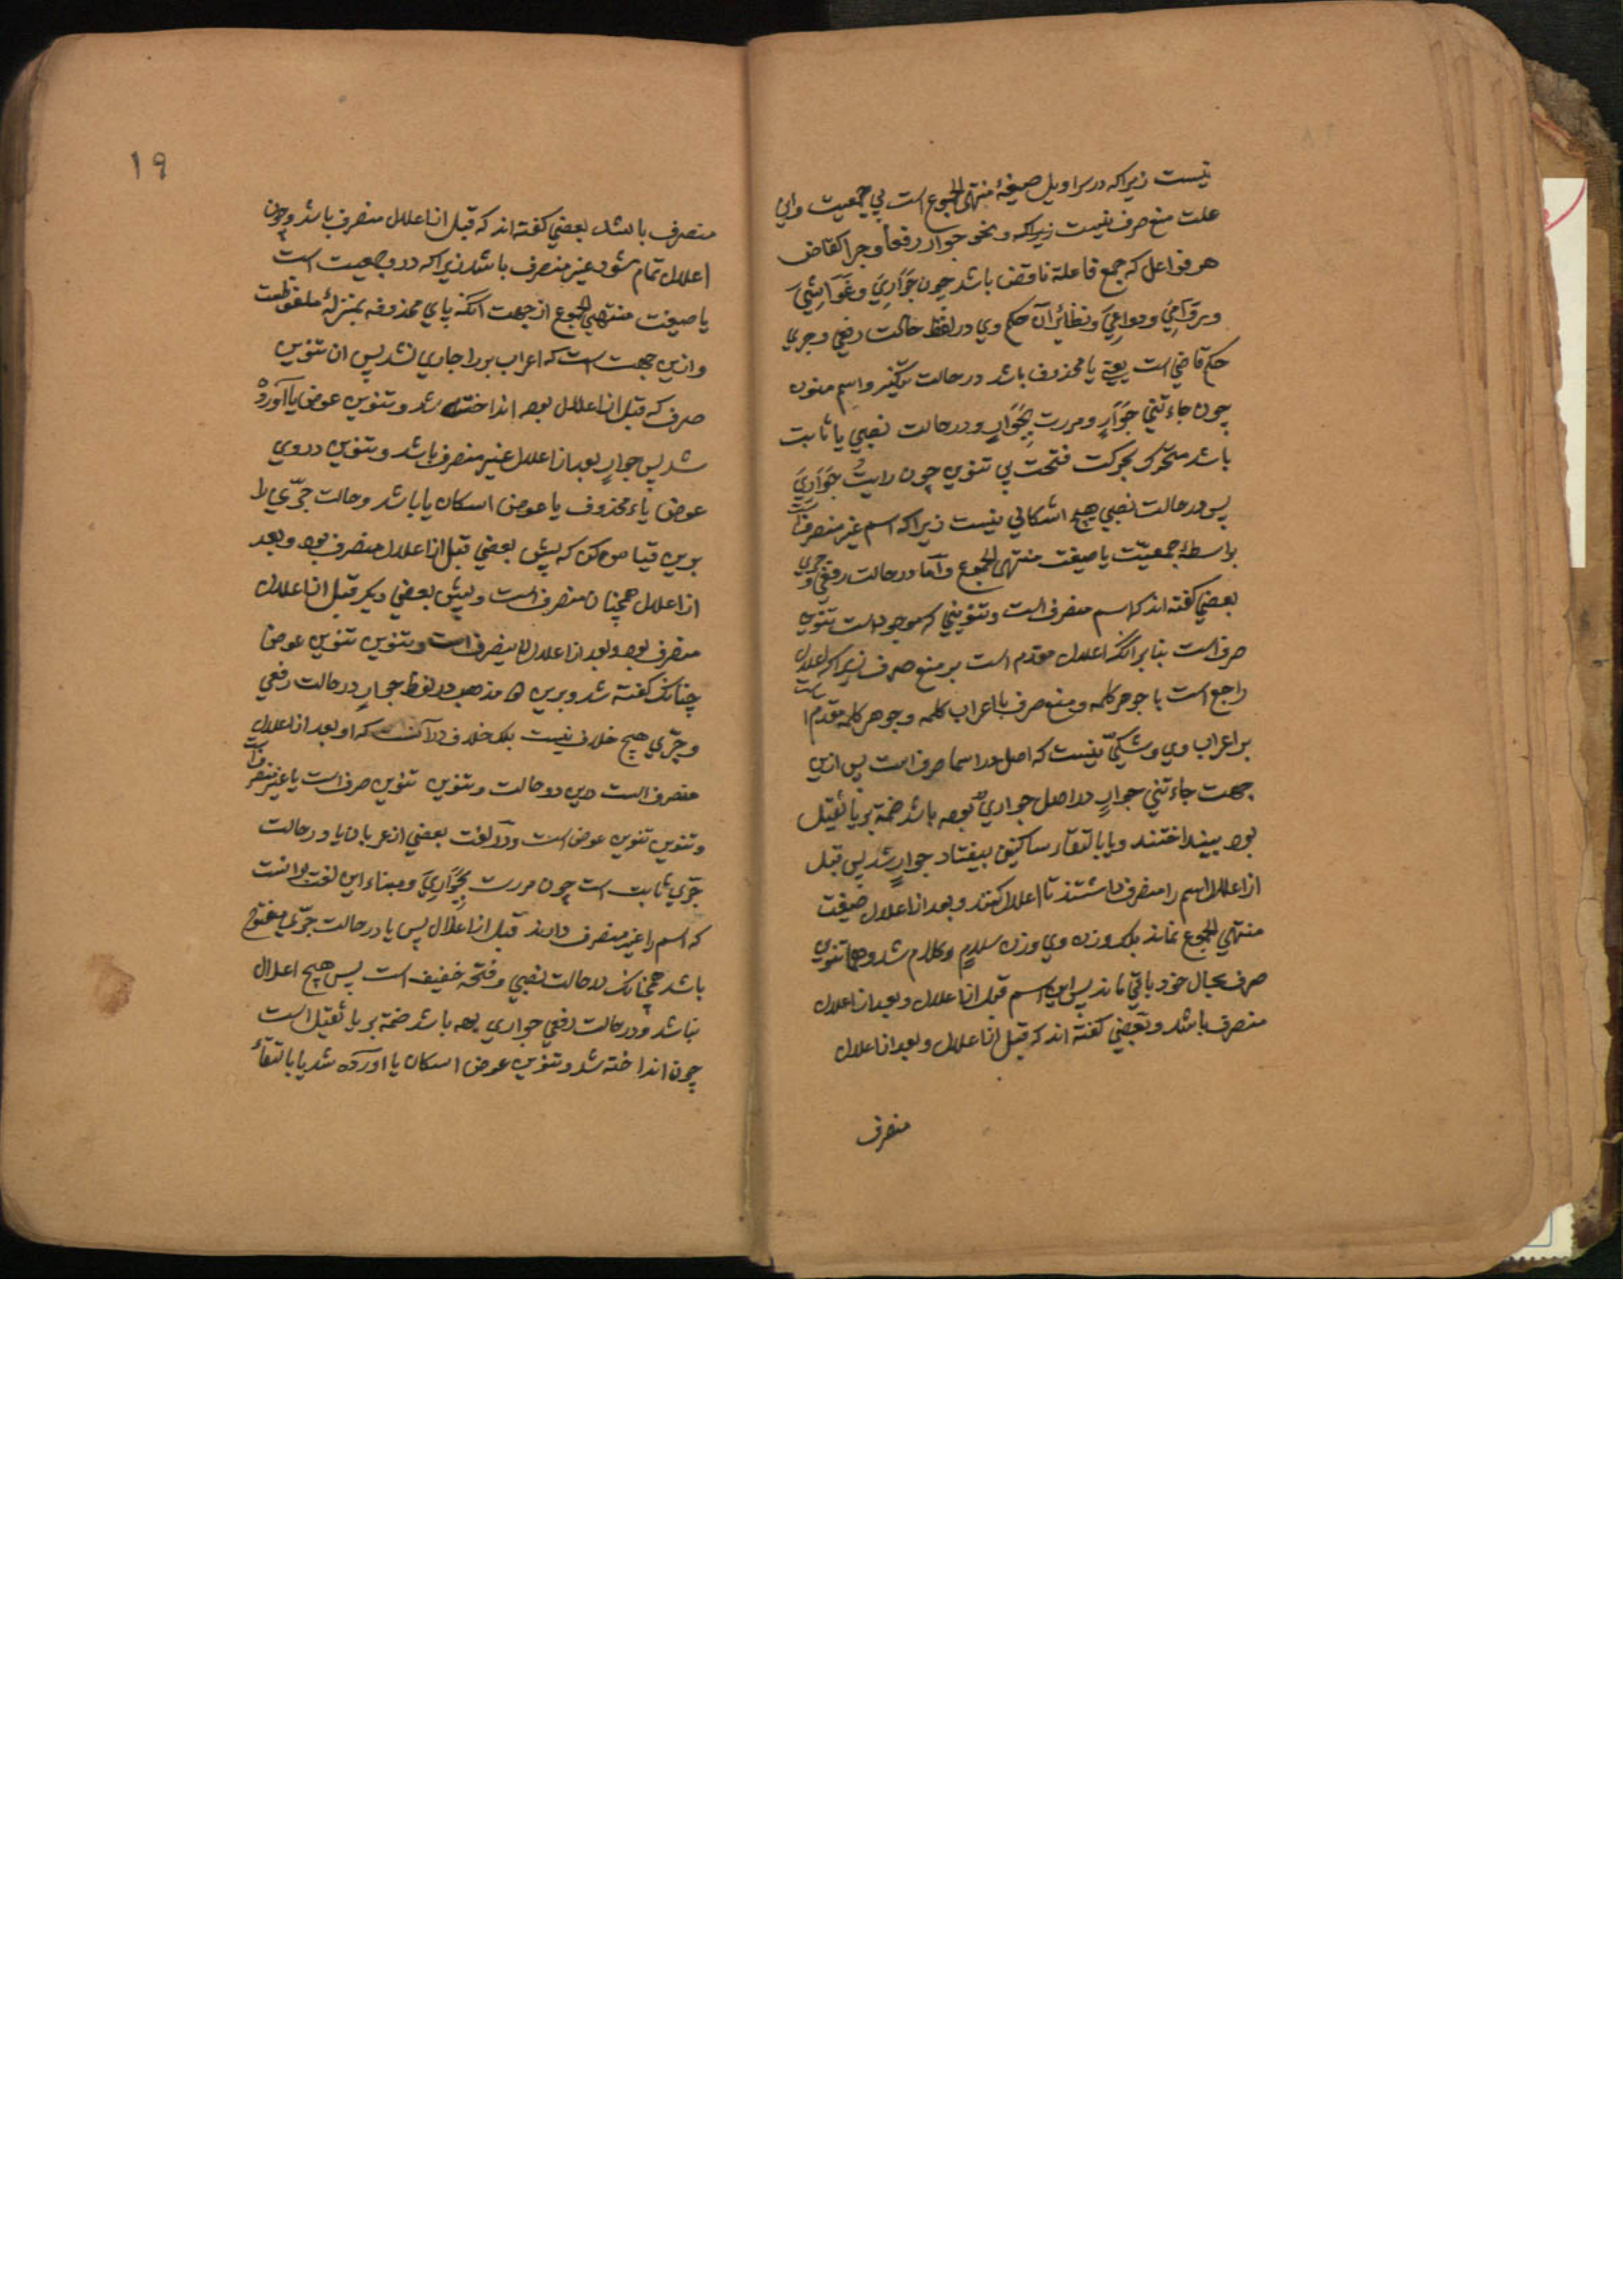 نیست زیراکه در سراویل صیغهٔ منتهی الجموع است بی جمعیت واین
علت منع صرف نیست زیراکه ونحو جوار رفعا وجرا کقاض
هر فواعل که جمع فاعلة ناقص باشد چون جَوَارِيَ وغَوَاشِيَ
و دواعِيَ ونظائر آن حکم وی در لفظ حالت رفعی وجری
حکم قاضی است یعنی یا محذوف باشد در حالت واسم منون
چون جاءتني جَوَارٍ ومررت بِجَوَارٍ ودر حالت نصبی یا ثابت
باشد متحرک بحرکت فتحت بی تنوین چون رایتُ جَوَارِيَ
پس در حالت نصبی هیچ اشکالی نیست زیراکه اسم غیر منصرف است
بواسطهٔ جمعیّت یا صیغت منتهی الجموع وامّا در حالت رفعی و جری
بعضی گفته اند که اسم منصرف است وتنوینی که موجود است تنوین
صرف است بنا بر آنکه اعلال مقدم است بر منع صرف زیراکه اعلال
راجع است با جوهر کلمه ومنع صرف با اعراب کلمه وجوهر کلمه مقدم است
بر اعراب وی وشکّی نیست که اصل در اسما صرف است پس ازین
جهت جاءتني جوارٍ در اصل جواريٌ بوده باشد ضمّه بر یا ثقیل
بود بینداختند ویا بالتقاء ساکنین بیفتاد جوارٍ شد پس قبل
از اعلال اسم را منصرف داشتند تا اعلال کنند وبعد از اعلال صیغت
منتهی الجموع نماند بلکه وزن وی وزن سلامٍ وکلام شد وهمان تنوین
صرف بحال خود باقی ماند پس این اسم قبل از اعلال وبعد از اعلال
منصرف باشد وبعضی گفته اند که قبل از اعلال وبعد از اعلال
منصرف
۱۹
منصرف باشد بعضی گفته اند که قبل از اعلال منصرف باشد وچون
اعلال تمام شود غیر منصرف باشد زیراکه درو جمعیت است
با صیغت منتهی الجموع از جهت آنکه یای محذوفه بمنزلهٔ ملفوظست
وازین جهت است که اعراب بر را جاری نشد پس آن تنوین
صرف که قبل از اعلال بود انداخته شد وتنوین عوض یا آورده
شد پس جوارٍ بعد از اعلال غیر منصرف باشد وتنوین در وی
عوض یاء محذوف یا عوض اسکان یا باشد وحالت جرّی را
برین قیاس کن که پیش بعضی قبل از اعلال منصرف بود وبعد
از اعلال همچنان منصرف است وپیش بعضی دیگر قبل از اعلال
منصرف بود وبعد از اعلال لا ینصرف است وتنوین تنوین عوض
چنانکه گفته شد وبرین مذهب در لفظ جوارٍ در حالت رفعی
وجرّی هیچ خلاف نیست بلکه خلاف در آنست که او بعد از اعلال
منصرف است درین دو حالت وتنوین تنوین صرف است یا غیر منصرف است
وتنوین تنوین عوض است ودر لغت بعضی از عربان یا در حالت
جرّی ثابت است چون مررت بِجَوَارِيَ ومبناء این لغت بر آنست
که اسم را غیر منصرف دارند قبل از اعلال پس یا در حالت جرّی مفتوح
باشد همچنانکه در حالت نصبی وفتحه خفیف است پس هیچ اعلال
نباشد ودر حالت رفعی جواري بوده باشد ضمّه بر یا ثقیل است
چون انداخته شد وتنوین عوض اسکان یا آورده شد یا بالتقاء